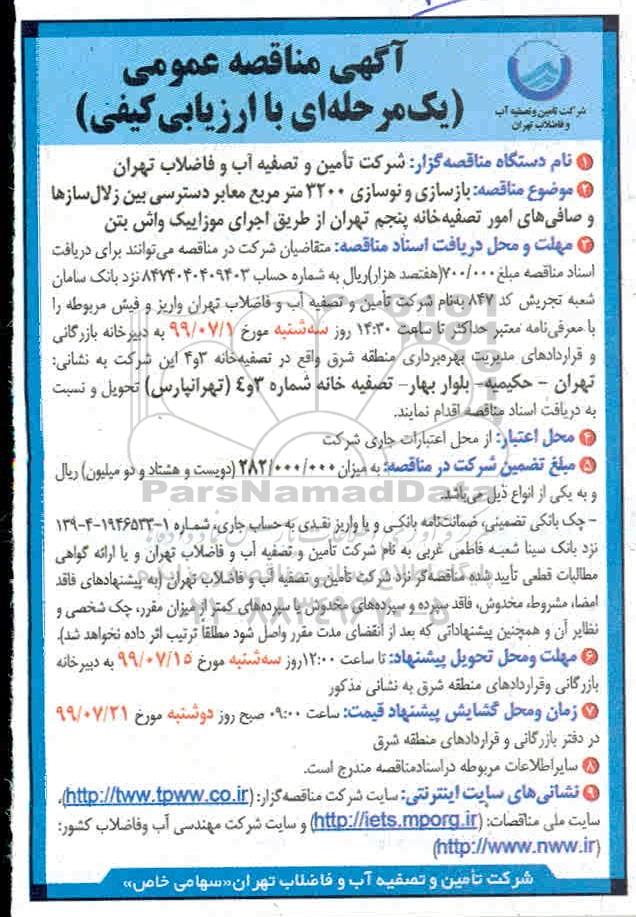 آگهی مناقصه عمومی
(یک‌مرحله‌ای با ارزیابی کیفی)
شرکت تامین و تصفیه آب
و فاضلاب تهران
۱ نام دستگاه مناقصه‌گزار: شرکت تأمین و تصفیه آب و فاضلاب تهران
۲ موضوع مناقصه: بازسازی و نوسازی ۳۲۰۰ متر مربع معابر دسترسی بین زلال‌سازها
و صافی‌های امور تصفیه‌خانه پنجم تهران از طریق اجرای موزاییک واش بتن
۳ مهلت و محل دریافت اسناد مناقصه: متقاضیان شرکت در مناقصه می‌توانند برای دریافت
اسناد مناقصه مبلغ ۷۰۰/۰۰۰(هفتصد هزار)ریال به شماره حساب ۸۴۷۴۰۴۰۴۰۹۴۰۳ نزد بانک سامان
شعبه تجریش کد ۸۴۷ به‌نام شرکت تأمین و تصفیه آب و فاضلاب تهران واریز و فیش مربوطه را
با معرفی‌نامه معتبر حداکثر تا ساعت ۱۴:۳۰ روز سه‌شنبه مورخ ۹۹/۰۷/۱ به دبیرخانه بازرگانی
و قراردادهای مدیریت بهره‌برداری منطقه شرق واقع در تصفیه‌خانه ۳و۴ این شرکت به نشانی:
تهران – حکیمیه– بلوار بهار– تصفیه خانه شماره ۳و٤ (تهرانپارس) تحویل و نسبت
به دریافت اسناد مناقصه اقدام نمایند.
۴ محل اعتبار: از محل اعتبارات جاری شرکت
۵ مبلغ تضمین شرکت در مناقصه: به میزان ۲۸۲/۰۰۰/۰۰۰ (دویست و هشتاد و دو میلیون) ریال
و به یکی از انواع ذیل می‌باشد.
– چک بانکی تضمینی، ضمانت‌نامه بانکی و یا واریز نقدی به حساب جاری، شماره ۱–۱۹۴۶۵۳۳–۴–۱۳۹
نزد بانک سینا شعبه فاطمی غربی به نام شرکت تأمین و تصفیه آب و فاضلاب تهران و یا ارائه گواهی
مطالبات قطعی تأیید شده مناقصه‌گر نزد شرکت تأمین و تصفیه آب و فاضلاب تهران (به پیشنهادهای فاقد
امضا، مشروط، مخدوش، فاقد سپرده و سپرده‌های مخدوش یا سپرده‌های کمتر از میزان مقرر، چک شخصی و
نظایر آن و همچنین پیشنهاداتی که بعد از انقضای مدت مقرر واصل شود مطلقا ترتیب اثر داده نخواهد شد).
۶ مهلت ومحل تحویل پیشنهاد: تا ساعت ۱۲:۰۰روز سه‌شنبه مورخ ۹۹/۰۷/۱۵ به دبیرخانه
بازرگانی وقراردادهای منطقه شرق به نشانی مذکور
۷ زمان ومحل گشایش پیشنهاد قیمت: ساعت ۰۹:۰۰ صبح روز دوشنبه مورخ ۹۹/۰۷/۲۱
در دفتر بازرگانی و قراردادهای منطقه شرق
۸ سایراطلاعات مربوطه دراسنادمناقصه مندرج است.
۹ نشانی‌های سایت اینترنتی: سایت شرکت مناقصه‌گزار: (http://tww.tpww.co.ir)،
سایت ملی مناقصات: (http://iets.mporg.ir) و سایت شرکت مهندسی آب وفاضلاب کشور:
(http://www.nww.ir)
شرکت تأمین و تصفیه آب و فاضلاب تهران«سهامی خاص»
ParsNamadData